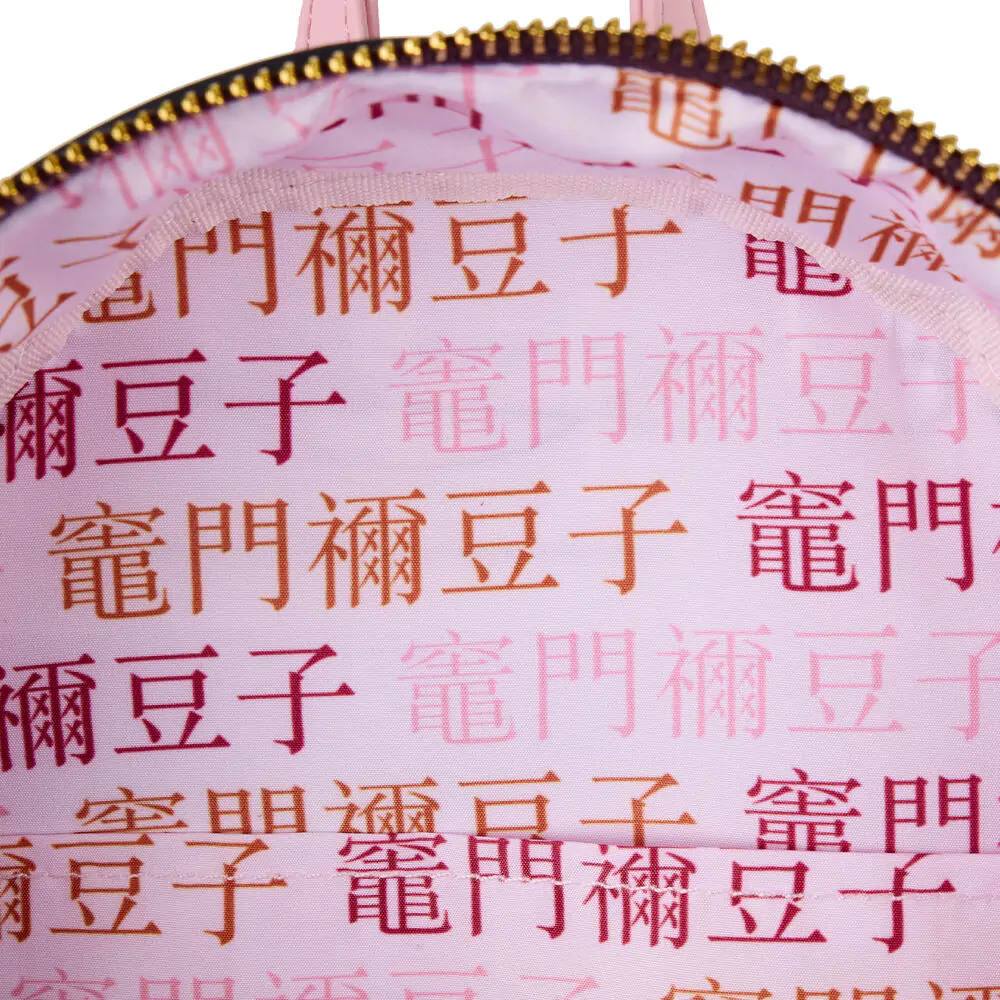 竈門
竈門禰豆子
竈門
禰
禰豆子
竈門禰豆子
竈門禰豆子
竈門
禰豆子
竈門禰豆子
竈門禰豆子
竈門
禰豆子
竈門禰豆子
竈門禰豆子